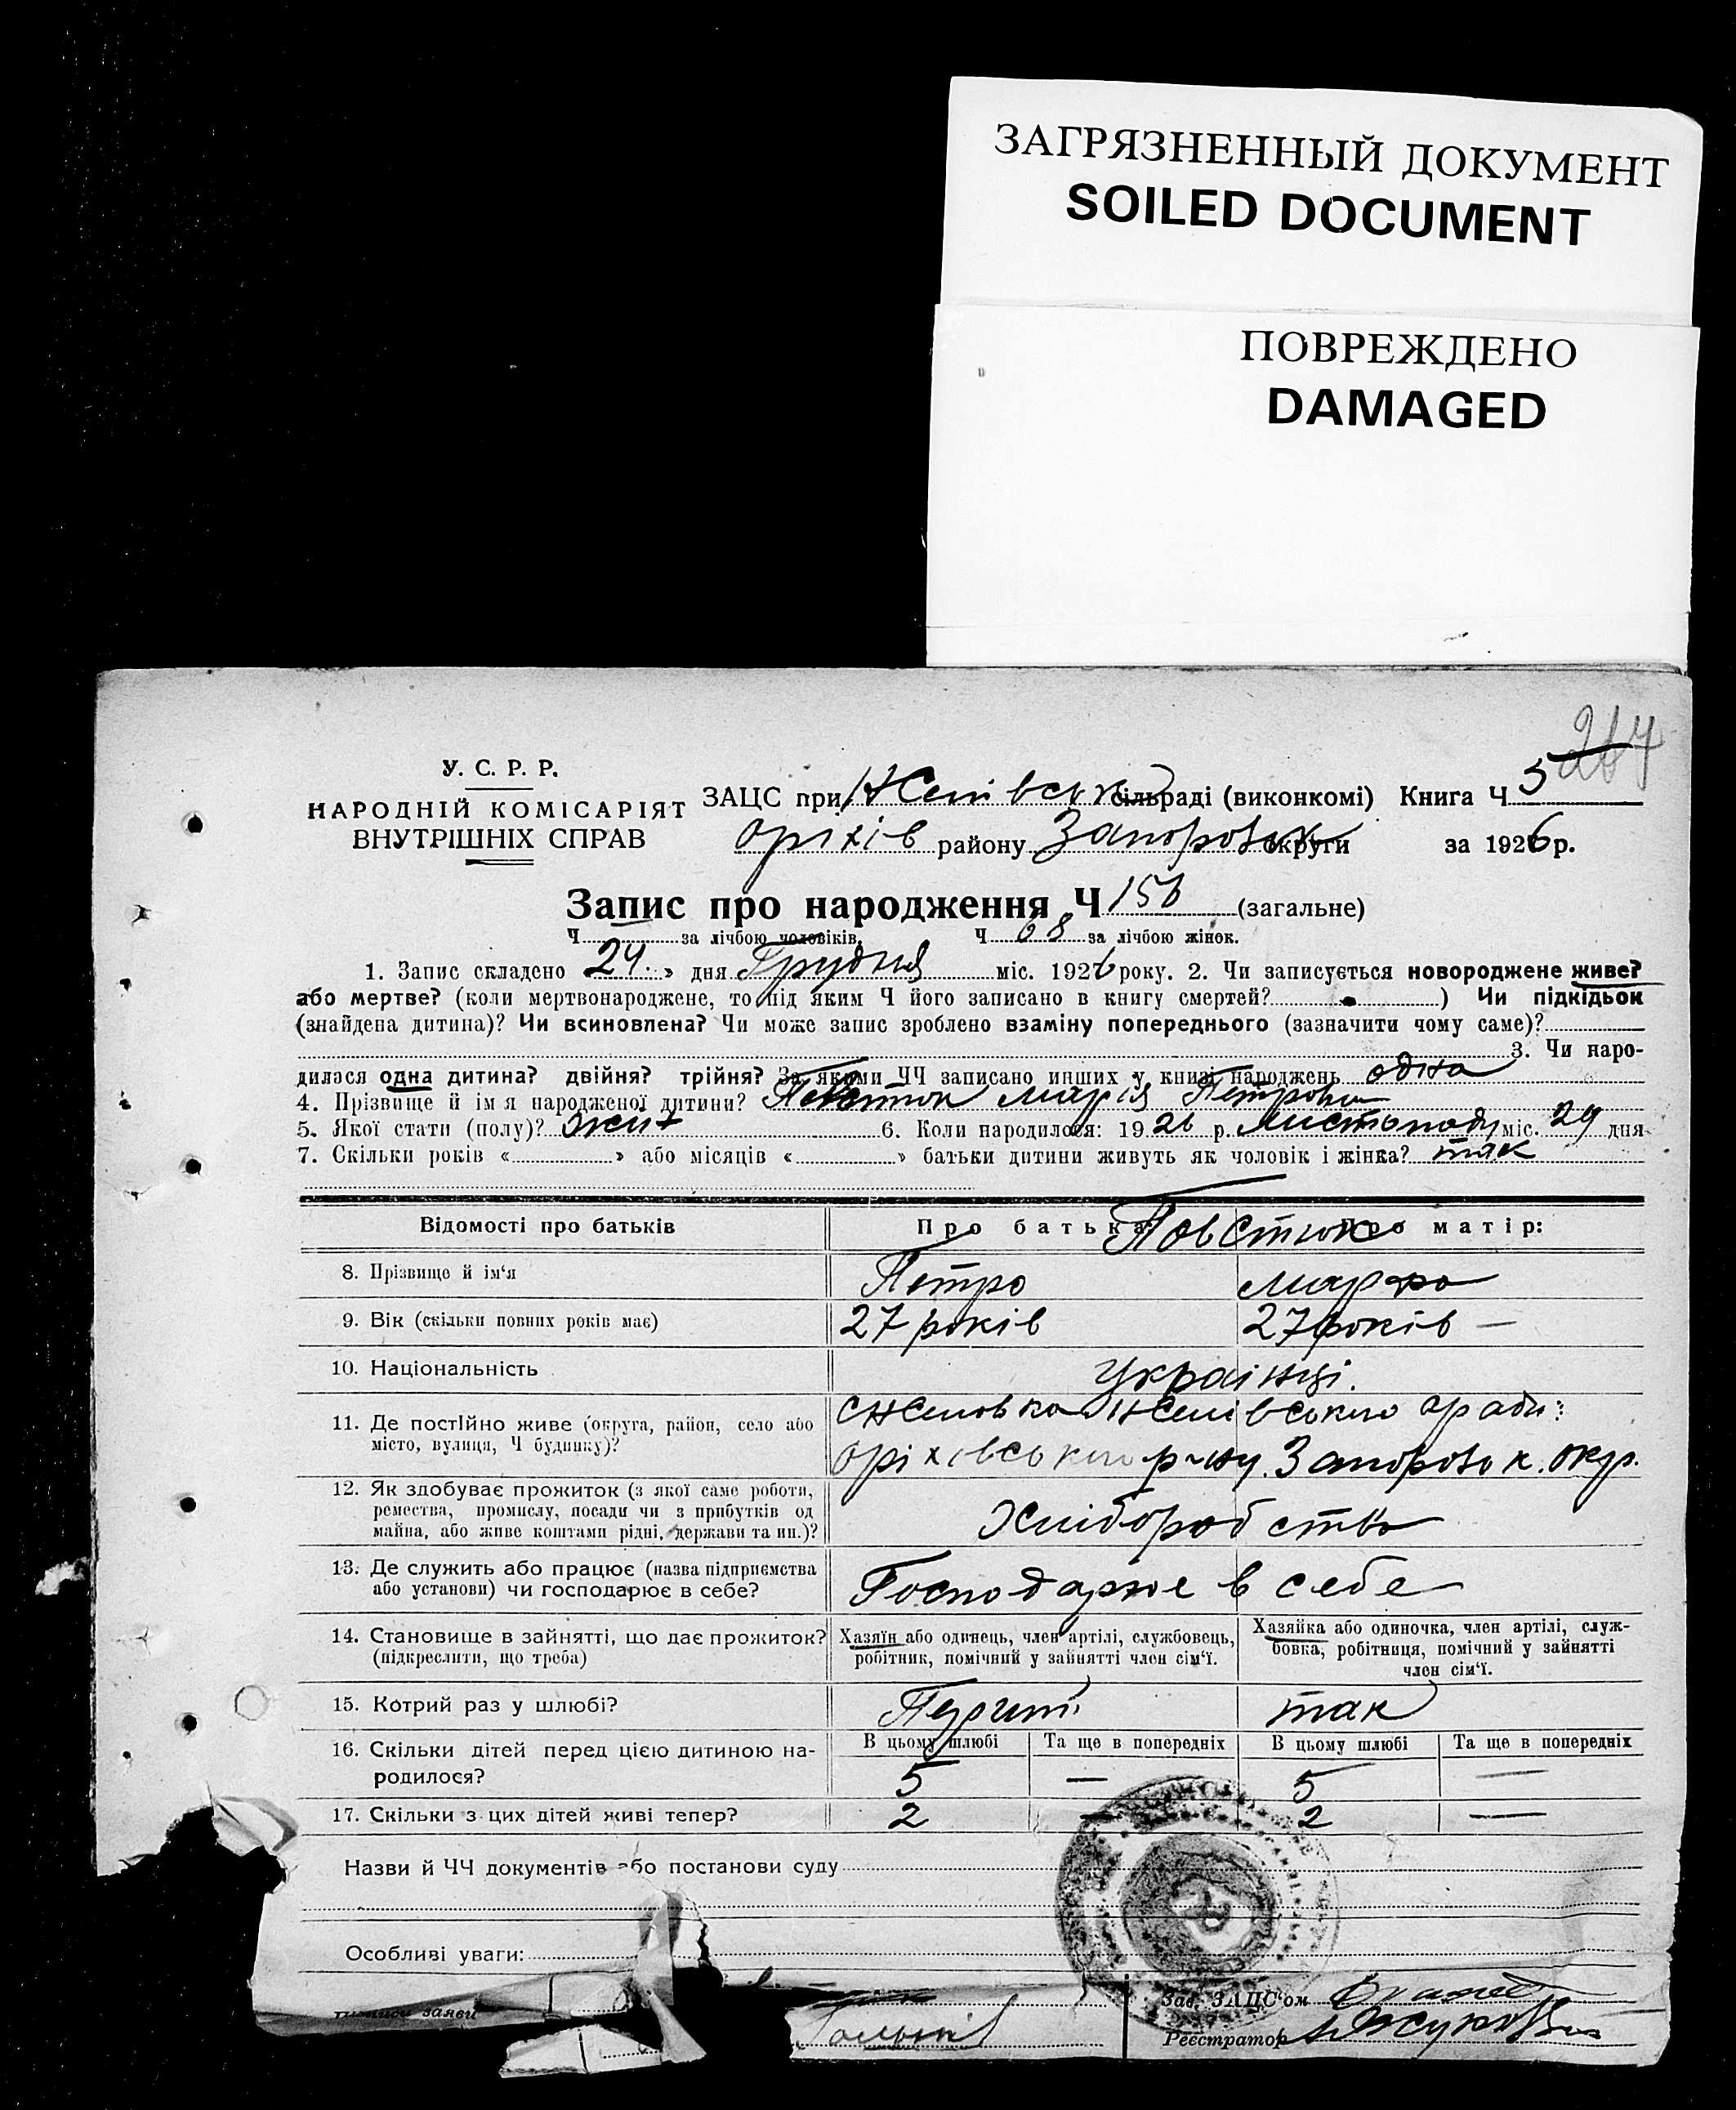 ЗАГРЯЗНЕННЫЙ ДОКУМЕНТ
SOILED DOCUMENT
ПОВРЕЖДЕНО
DAMAGED
У. С. Р. Р.
НАРОДНІЙ КОМІСАРІЯТ
ВНУТРІШНІХ СПРАВ
ЗАЦС при сільраді (виконкомі) Книга Ч 5
Оріхів району Запорозьк округи за 1926 р.
Запис про народження Ч 156 (загальне)
Ч за лічбою чоловіків. Ч 68 за лічбою жінок.
1. Запис складено 24 » дня Грудня міс. 1926 року. 2. Чи записується новороджене живе?
або мертве? (коли мертвонароджене, то під яким Ч його записано в книгу смертей? ) Чи підкідьок
(знайдена дитина)? Чи всиновлена? Чи може запис зроблено взаміну попереднього (зазначити чому саме)?
3. Чи наро-
дилася одна дитина? двійня? трійня? За якими ЧЧ записано инших у книзі народжень одна
4. Прізвище й ім я народженої дитини? Повстюк Марія Петровна
5. Якої стати (полу)? жін 6. Коли народилося: 1926 р. Листопаду міс. 29 дня
7. Скільки років « » або місяців « » батьки дитини живуть як чоловік і жінка? так
Відомості про батьків Про батька: Про матір:
Повстюк
8. Прізвище й ім‘я Петро Марфа
9. Вік (скільки повних років має) 27 років 27 років —
10. Національність Українці.
11. Де постійно живе (округа, район, село або
місто, вулиця, Ч будинку)?
Оріхівського р-ну. Запорозьк. окр.
12. Як здобуває прожиток (з якої саме роботи,
ремества, промислу, посади чи з прибутків од
майна, або живе коштами рідні, держави та ин.)? Хліборобство
13. Де служить або працює (назва підприємства
або установи) чи господарює в себе? Господарює в себе
14. Становище в зайнятті, що дає прожиток?
(підкреслити, що треба)
Хазяїн або одинець, член артілі, службовець,
робітник, помічний у зайнятті член сім‘ї.
Хазяйка або одиночка, член артілі, служ-
бовка, робітниця, помічний у зайнятті
член сім‘ї.
15. Котрий раз у шлюбі? Перший так
16. Скільки дітей перед цією дитиною на-
родилося?
В цьому шлюбі Та ще в попередніх В цьому шлюбі Та ще в попередніх
5 — 5 —
17. Скільки з цих дітей живі тепер? 2 — 2 —
Назви й ЧЧ документів або постанови суду
Особливі уваги:
Зав. ЗАЦС‘ом
Реєстратор